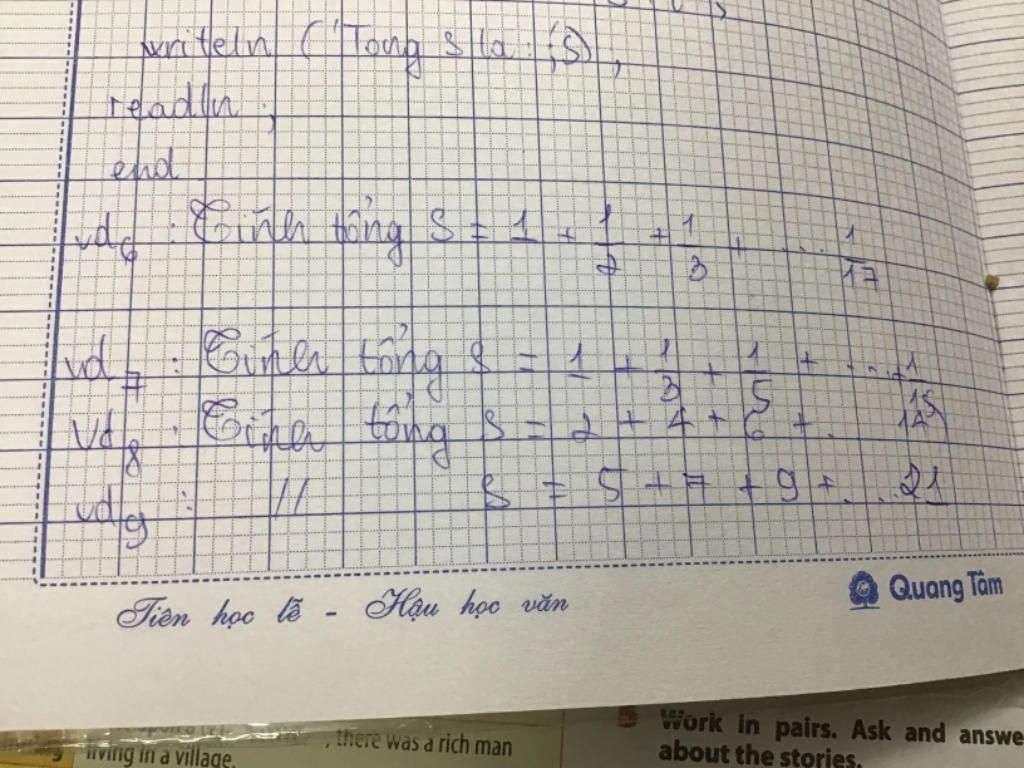 writeln ('Tong S la: ', S),
readln;
end
vd6 : Tính tổng S = 1 + 1/2 + 1/3 + ... 1/17
vd7 : Tính tổng S = 1 + 1/3 + 1/5 + ... + 1/15
vd8 : Tính tổng S = 2 + 4 + 6 + . 14
vd9 : // S = 5 + 7 + 9 + ... 21
Tiên học lễ - Hậu học văn
Quang Tâm
living in a village.
, there was a rich man
Work in pairs. Ask and answe
about the stories.